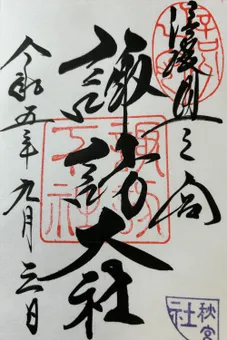 信濃國一之宮
諏訪大社
令和五年九月三日
諏訪大社
秋宮
社